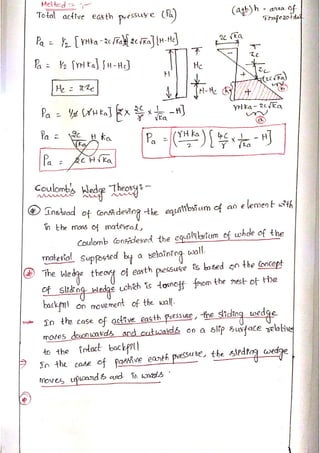 Method :-
Total active earth pressure (Pa)
(a+b) h = area of Trapezoidal
Pa = 1/2 [γHka - 2c√ka + 2c√ka] [H-Hc]
Pa = 1/2 [γH ka] [H-Hc]
Hc = 2Zc
Pa = 1/2 (γH ka) [2 x 2c/γ x 1/√ka - H]
Pa = 2c/√ka H ka
Pa = 2c H √ka
Pa = (γH ka/2) [4c/γ x 1/√ka - H]
H
Hc
H-Hc
2c√ka
Zc
Zc
2c√ka
γHka - 2c√ka
Coulomb's Wedge Theory :-
Instead of considering the equilibrium of an element with
in the mass of material,
Coulomb considered the equilibrium of whole of the
material supported by a retaining wall.
The wedge theory of earth pressure is based on the concept
of sliding wedge which is tornoff from the rest of the
backfill on movement of the wall.
→ In the case of active earth pressure, the sliding wedge
moves downwards and outwards on a slip surface relative
to the intact backfill
→ In the case of passive earth pressure, the sliding wedge
moves upwards and inwards.